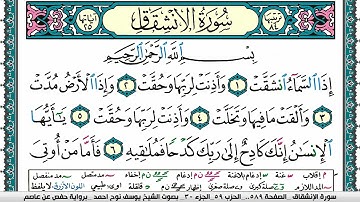 سُورَةُ الِانْشِقَاقِ
بِسْمِ ٱللَّهِ ٱلرَّحْمَٰنِ ٱلرَّحِيمِ
إِذَا ٱلسَّمَآءُ ٱنشَقَّتْ ١ وَأَذِنَتْ لِرَبِّهَا وَحُقَّتْ ٢ وَإِذَا ٱلْأَرْضُ مُدَّتْ
٣ وَأَلْقَتْ مَا فِيهَا وَتَخَلَّتْ ٤ وَأَذِنَتْ لِرَبِّهَا وَحُقَّتْ ٥ يَٰٓأَيُّهَا
ٱلْإِنسَٰنُ إِنَّكَ كَادِحٌ إِلَىٰ رَبِّكَ كَدْحًا فَمُلَٰقِيهِ ٦ فَأَمَّا مَنْ أُوتِىَ
سورة الإنشقاق الصفحة ٥٨٩ .. الحزب ٥٩ الجزء ٣٠ .. بصوت الشيخ يوسف نوح احمد برواية حفص عن عاصم